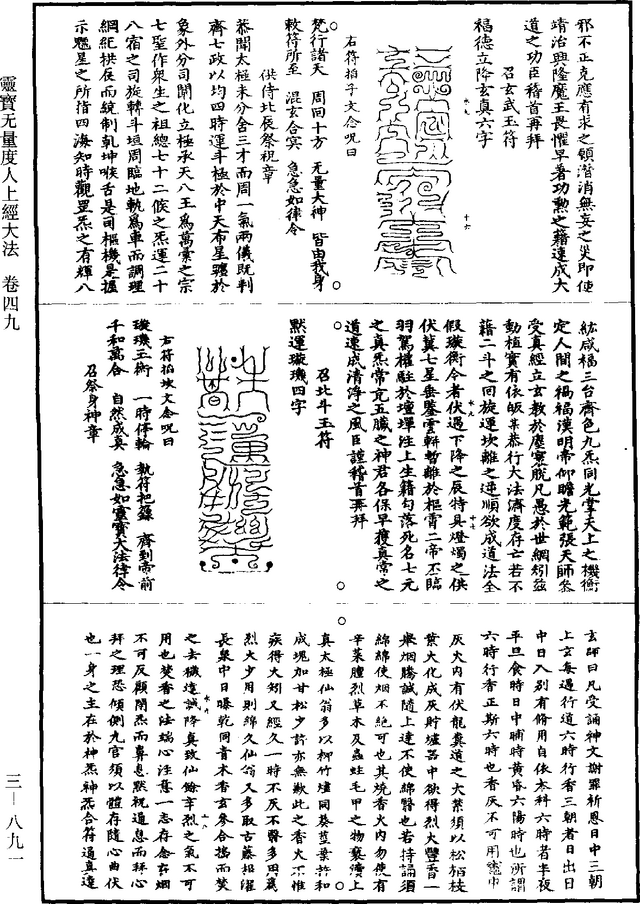 靈寶无量度人上經大法　卷四九
三—八九一
邪不正克應有求之願潛消無妄之災即使
靖治興隆魔王畏懼早著功勲之籍速成大
道之功臣稽首再拜
召玄武玉符
福德立降玄真六字
右符掐子文念呪曰
梵行諸天　周回十方　无量大神　皆由我身
敕符所至　混玄合冥　急急如律令
供侍北辰祭祝章
恭聞太極未分含三才而周一氣兩儀既判
齊七政以均四時運斗極於中天布星躔於
象外分司開化立極承天八王爲萬彚之宗
七聖作衆生之祖總七十二候之炁運二十
八宿之司旋斡斗垣周臨地軌爲車而調理
綱紀拱辰而統制乹坤喉舌是司樞機是握
示魁星之所指四海知時觀罡炁之有輝八
紘咸福三台齊色九炁同光掌天上之機衡
定人間之禍福漢明帝仰瞻光範張天師叅
受真經立玄教於塵寰脫凡愚於世網矧兹
動植實有依皈某恭行大法濟度存亡若不
藉二斗之回旋運坎離之逆順欲成道法全
假璇衡今者伏遇下降之辰特具燈燭之供
伏冀七星垂鑒雲軿暫離於樞霄二帝丕臨
羽駕權駐於壇墠注上生籍勾落死名七元
之真炁常充五臟之神君各保早獲真常之
道速成清淨之風臣謹稽首再拜
召北斗玉符
默運璇璣四字
右符掐坎文念呪曰
璇璣玉衡　一時停輪　執符把籙　齊到帝前
千和萬合　自然成真　急急如靈寶大法律令
召祭身神章
玄師曰凡受誦神文謝罪祈恩日中三朝
上玄每遇行道六時行香三朝者日出日
中日入别有脩用自依本科六時者半夜
平旦食時日中晡時黄昏六陽時也所謂
六時行香正斯六時也香灰不可用竈中
灰火内有伏龍糞道之大禁須以松栢枝
葉火化成灰貯壚器中欲得烈火豐香一
舉烟騰誠隨上達不使綿翳也若持誦須
綿綿使烟不絶可也其燒香火内勿使有
辛葉膻烈草木及蟲蛀毛甲之物褻瀆上
真太極仙翁多以柳竹爐同葵莖葉許和
成塊加甘松少許亦無歎此之香火不惟
疾得大矧又經久一時不灰不翳多用爲
烈火少用則綿久仙翁又多取古藤根濯
長泉中日曝乾同青木香玄參合搗而焚
之去穢遠誠降真致仙餘辛烈之氣不可
用也焚香之法端心注意一志存念右烟
不可反顧閉炁而鼻息黙祝通息而拜心
拜之理恐傾側九宫須以體存隨心曲伏
也一身之主在於神炁神炁合符通真達